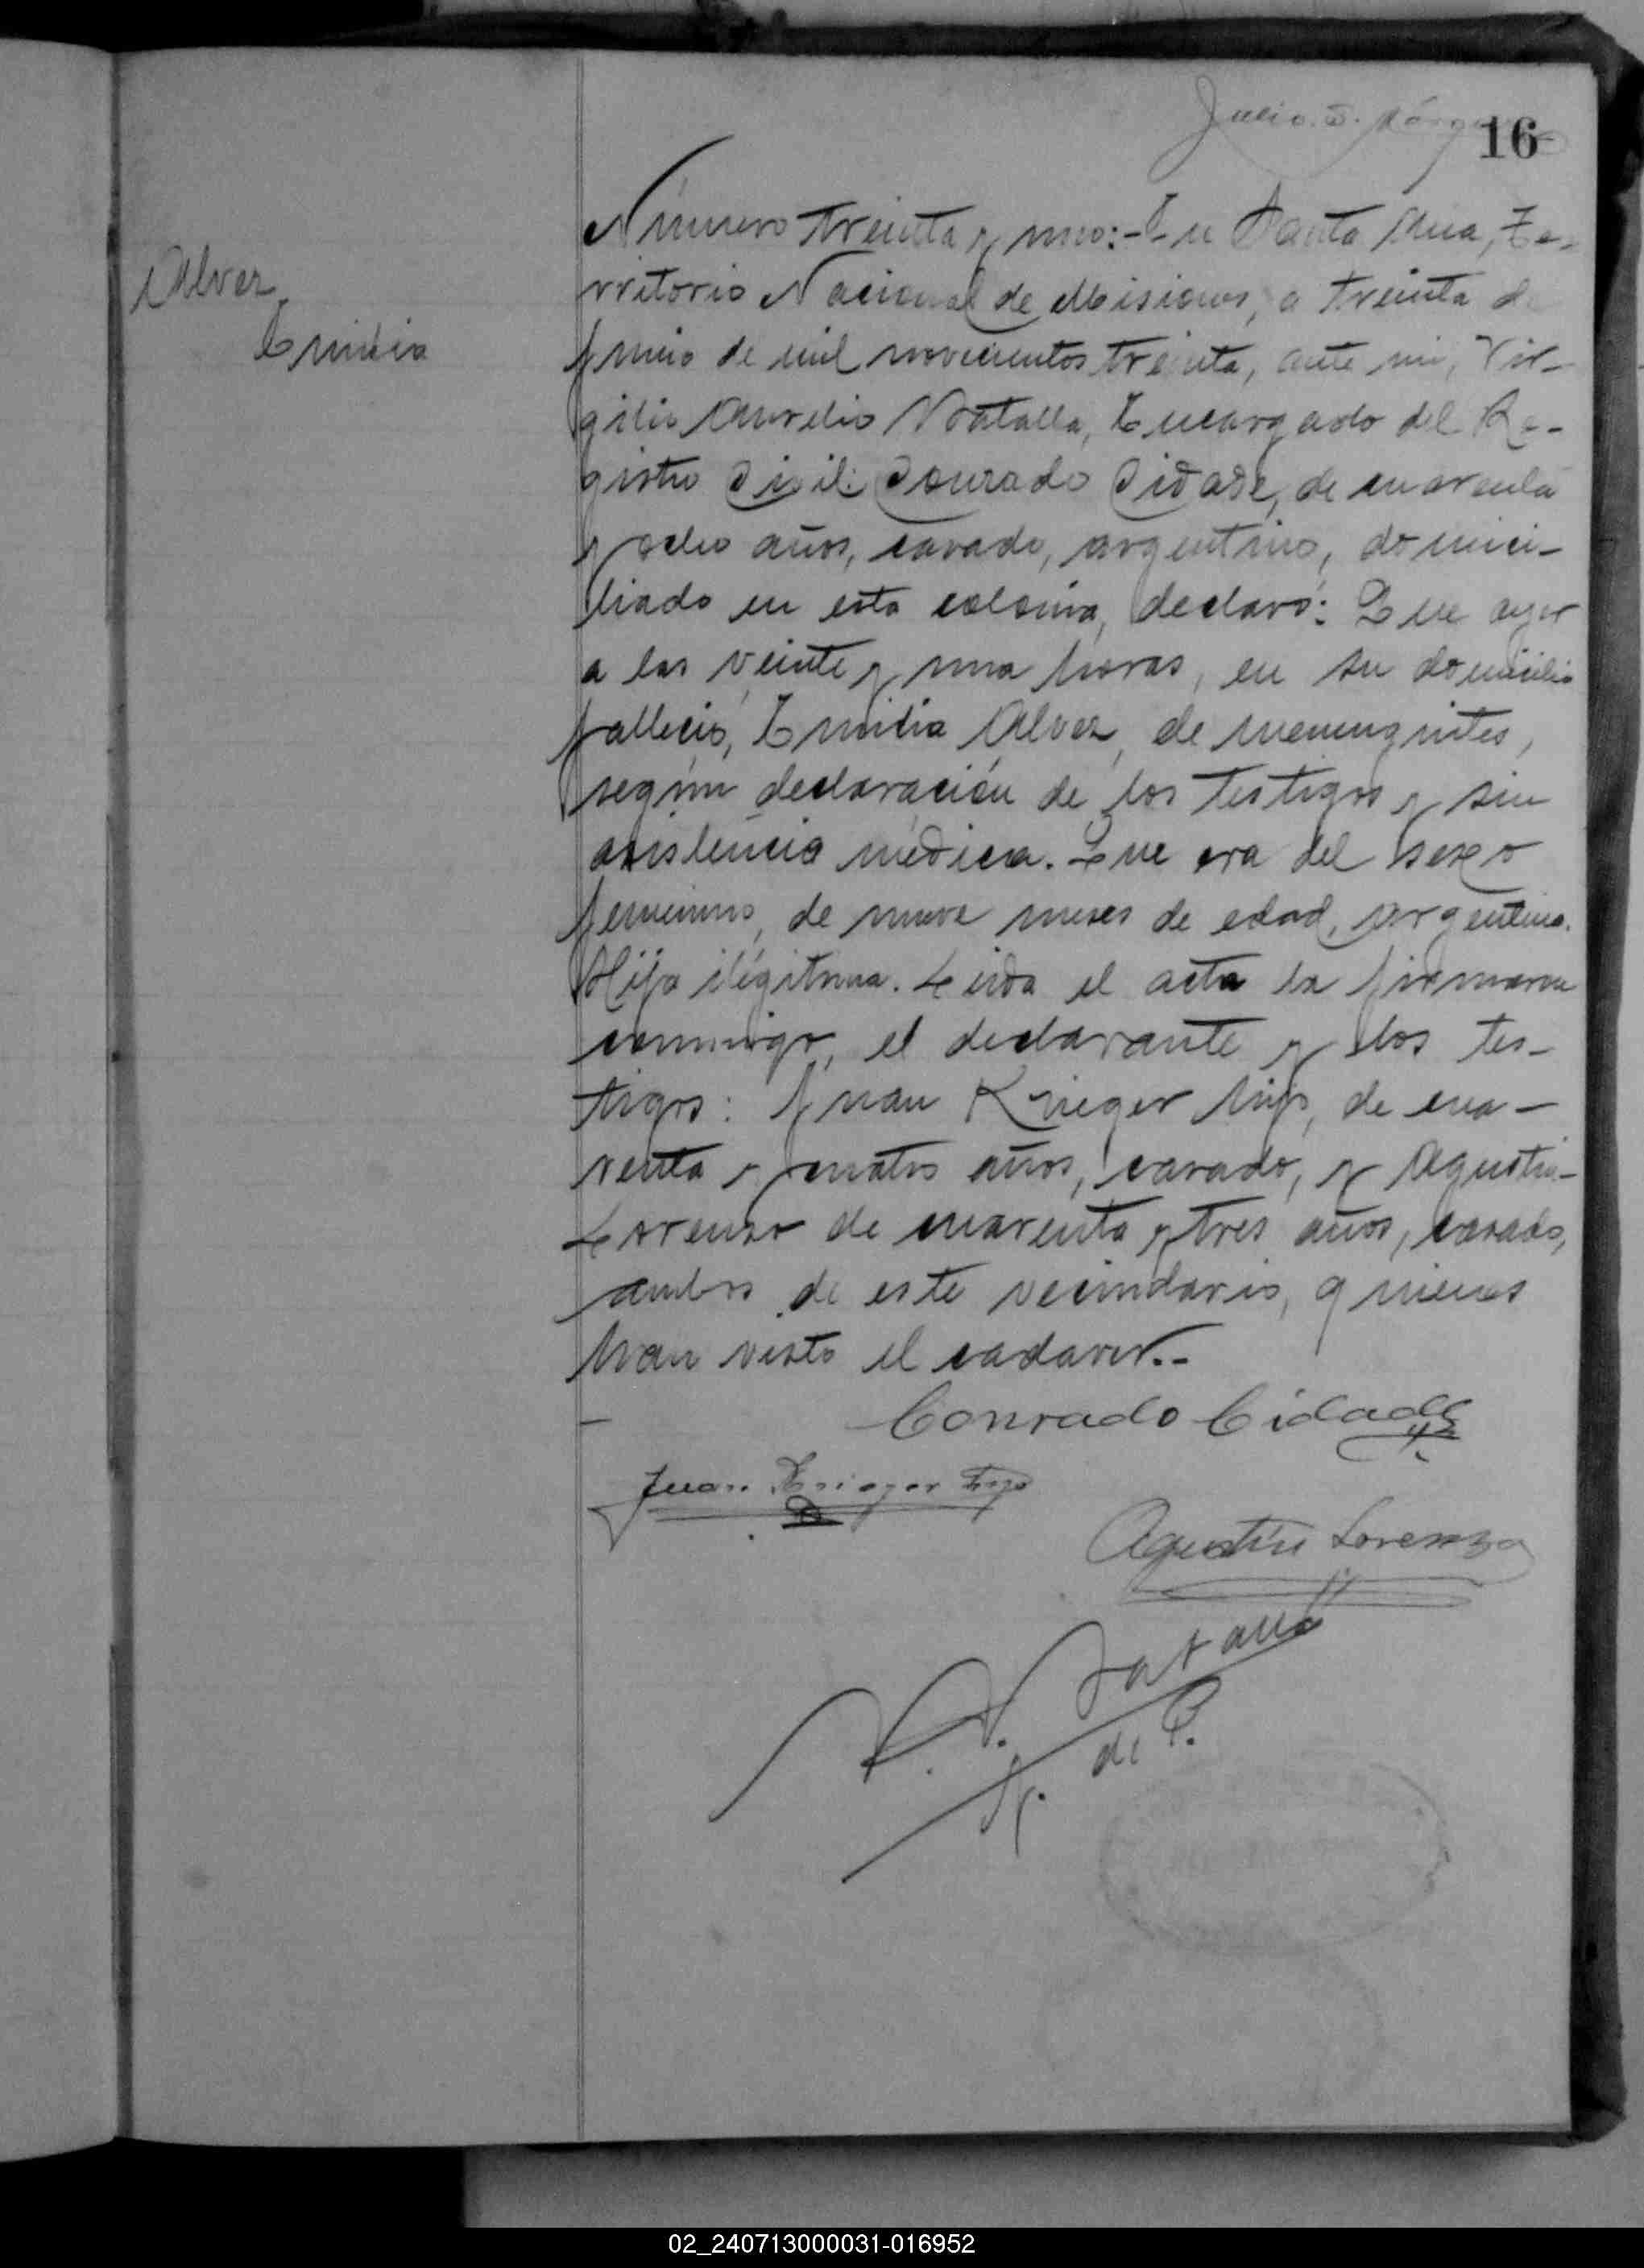 Julio
16
Alvez
Emilia
Número treinta y uno:- En Santa Ana, Te-
rritorio Nacional de Misiones, a treinta de
junio de mil novecientos treinta, ante mi, Vir-
gilio Aurelio Batalla, Encargado del Re-
gistro Civil: Conrado Cidade, de cuarenta
y ocho años, casado, argentino, domici-
liado en esta colonia, declaró: Que ayer
a las veinte y una horas, en su domicilio
falleció, Emilia Alvez, de meningites,
según declaración de los testigos y sin
asistencia médica. Que era del sexo
femenino, de nueve meses de edad, argentina.
Hija ilegitima. Leida el acta la firmaron
conmigo, el declarante y los tes-
tigos: Juan Krieger hijo, de cua-
renta y cuatro años, casado, y Agustin
Lorenzo de cuarenta y tres años, casado,
ambos de este vecindario, quienes
han visto el cadaver.-
Conrado Cidade
Juan Krieger hijo
Agustín Lorenzo
V. A. Batalla
J. de P.
02_240713000031-016952